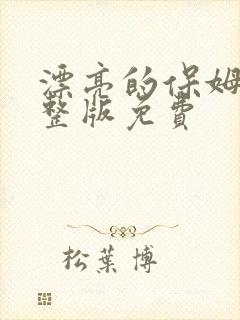 漂亮的保姆
整版免费
松葉博